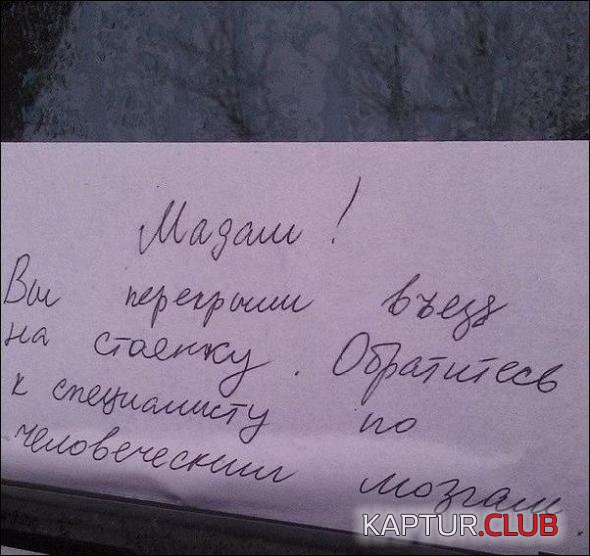 Мадам!
Вы перекрыли въезд
на стоянку. Обратитесь
к специалисту по
человеческим мозгам.
KAPTUR.CLUB